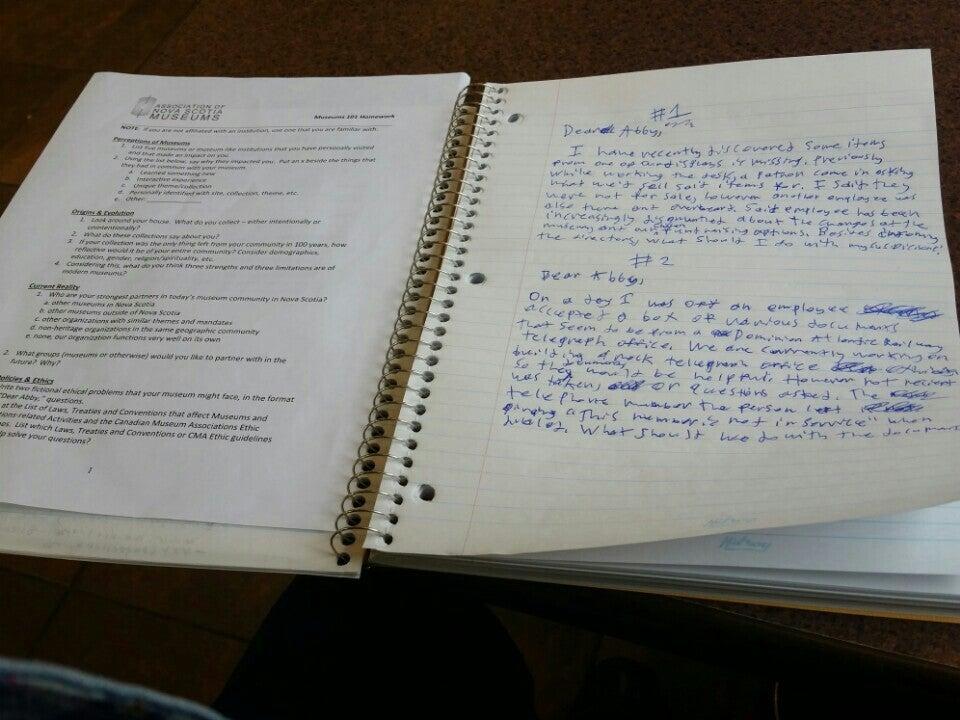 ASSOCIATION OF
NOVA SCOTIA
MUSEUMS
Museums 101 Homework
NOTE: If you are not affiliated with an institution, use one that you are familiar with.
Perceptions of Museums
1. List five museums or museum like institutions that you have personally visited
and that made an impact on you.
2. Using the list below, say why they impacted you. Put an x beside the things that
they had in common with your museum.
a. Learned something new
b. Interactive experience
c. Unique theme/collection
d. Personally identified with site, collection, theme, etc.
e. Other:
Origins & Evolution
1. Look around your house. What do you collect – either intentionally or
unintentionally?
2. What do these collections say about you?
3. If your collection was the only thing left from your community in 100 years, how
reflective would it be of your entire community? Consider demographics,
education, gender, religion/spirituality, etc.
4. Considering this, what do you think three strengths and three limitations are of
modern museums?
Current Reality
1. Who are your strongest partners in today's museum community in Nova Scotia?
a. other museums in Nova Scotia
b. other museums outside of Nova Scotia
c. other organizations with similar themes and mandates
d. non-heritage organizations in the same geographic community
e. none, our organization functions very well on its own
2. What groups (museums or otherwise) would you like to partner with in the
future? Why?
olicies & Ethics
rite two fictional ethical problems that your museum might face, in the format
"Dear Abby," questions.
at the List of Laws, Treaties and Conventions that affect Museums and
tions-related Activities and the Canadian Museum Associations Ethic
es. List which Laws, Treaties and Conventions or CMA Ethic guidelines
lp solve your questions?
1
#1
Dear Abby,
I have recently discovered some items
from one of our displays is missing. Previously
while working the desk, a patron came in asking
what we'd sell said items for. I said they
were not for sale, however another employee was
also there and overheard. Said employee has been
increasingly disgruntled about the changes at the
museum, and our fund raising options. Besides
the director, what should I do with my suspicions?
#2
Dear Abby,
On a day I was off an employee
accepted a box of various documents
that seem to be from a Dominion Atlantic Railway
telegraph office. We are currently working on
building a mock telegraph office
so they would be helpful. However not
was taken, or questions asked. The
telephone number the person left
a "This number is not in service" when
What should we do with the